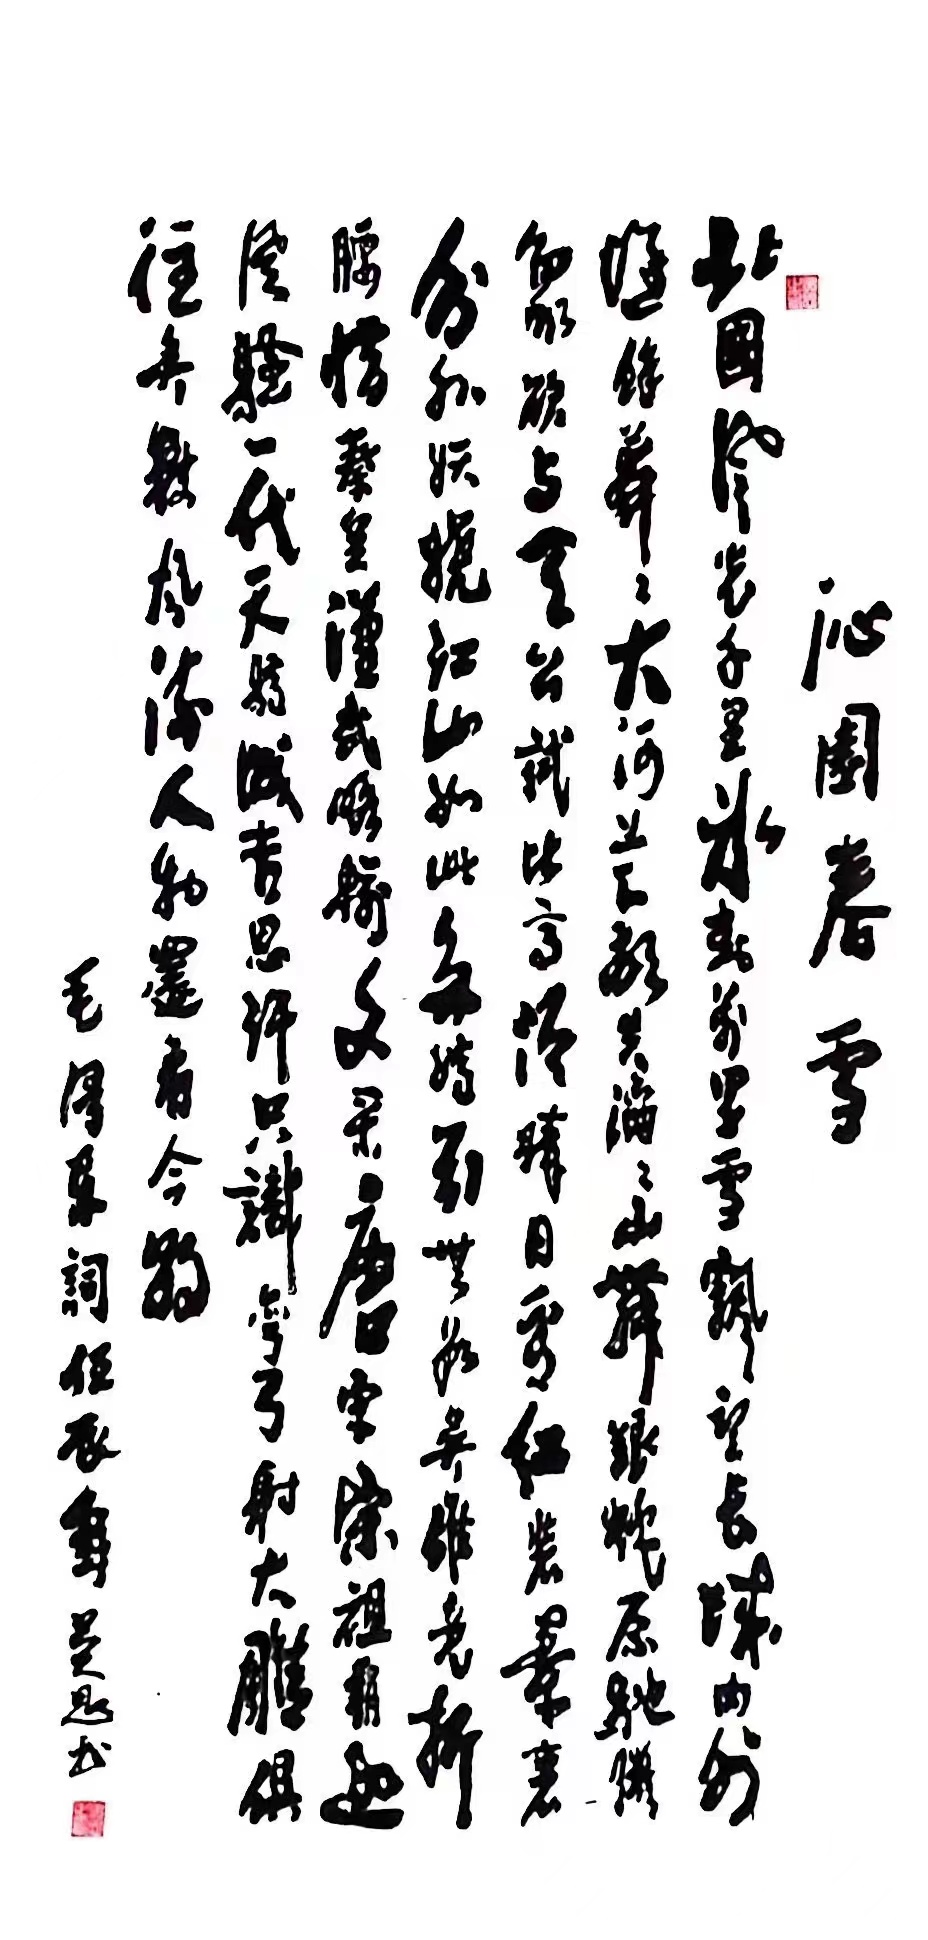 沁園春 雪
北國風光千里冰封萬里雪飄望長城内外
惟餘莽々大河上下頓失滔々山舞銀蛇原馳臘
象欲与天公試比高須晴日看紅裝素裹
分外妖嬈江山如此多嬌引無數英雄競折
腰惜秦皇漢武略輸文采唐宗宋祖稍遜
風騷一代天驕成吉思汗只識彎弓射大雕俱
往矣數風流人物還看今朝
毛澤東詞 辰 書